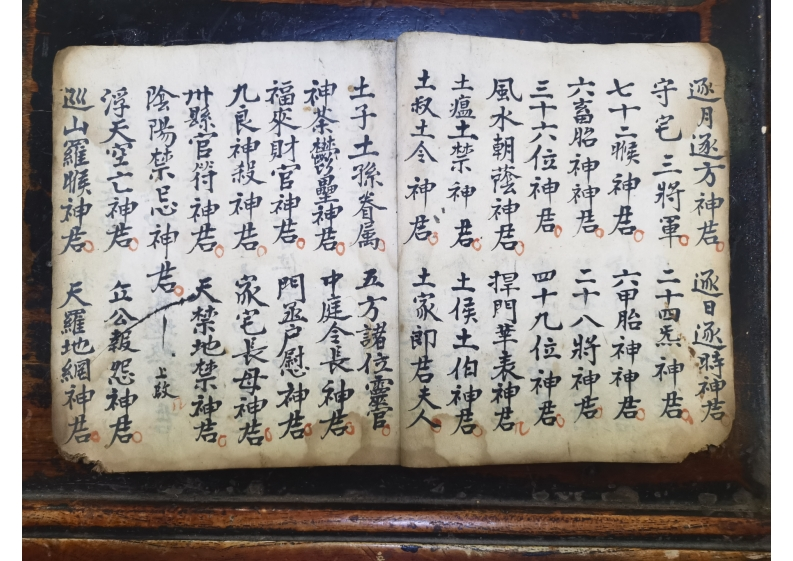 逐月逐方神君 逐日逐時神君
守宅三將軍 二十四炁神君
七十二㬋神君 六甲胎神神君
六畜胎神神君 二十八將神君
三十六位神君 四十九位神君
風水朝蔭神君 捍門華表神君
土瘟土禁神君 土侯土伯神君
土叔土令神君 土家郎君夫人
土子土孫眷属 五方諸位靈官
神荼欎壘神君 中庭令長神君
福來財官神君 門丞户慰神君
九良神殺神君 家宅長母神君
州縣官符神君 天禁地禁神君
陰陽禁忌神君 上政
浮天空亡神君 丘公報怨神君
巡山羅㬋神君 天羅地網神君